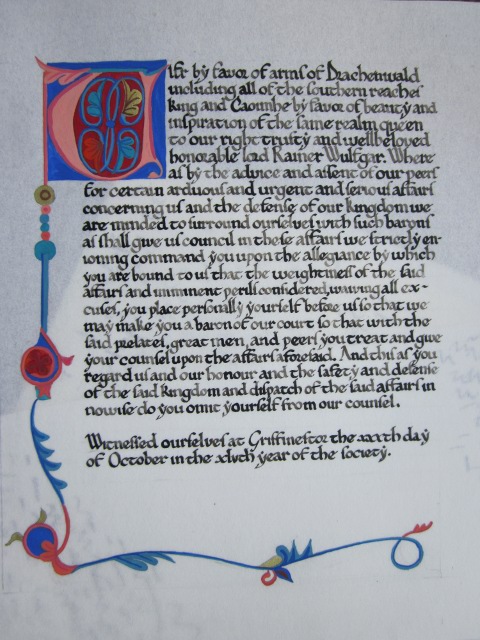 Ulfr by favor of arms of Drachenwald
including all of the southern reaches
king and Caoimhe by favor of beauty and
inspiration of the same realm queen
to our right trusty and wellbeloved
honorable lord Rainer Wulfgar. Where
as by the advice and assent of our peers
for certain arduous and urgent and serious affairs
concerning us and the defense of our kingdom we
are minded to surround ourselves with such barons
as shall give us council in these affairs we strictly en-
joining command you upon the allegiance by which
you are bound to us that the weightiness of the said
affairs and imminent perils considered, waiving all ex-
cuses, you place personally yourself before us so that we
may make you a baron of our court so that with the
said prelates, great men, and peers you treat and give
your counsel upon the affairs aforesaid. And this as you
regard us and our honour and the safety and defense
of the said kingdom and dispatch of the said affairs in
nowise do you omit yourself from our counsel.
Witnessed ourselves at the xxxth day
of October in the xlvth year of the society.